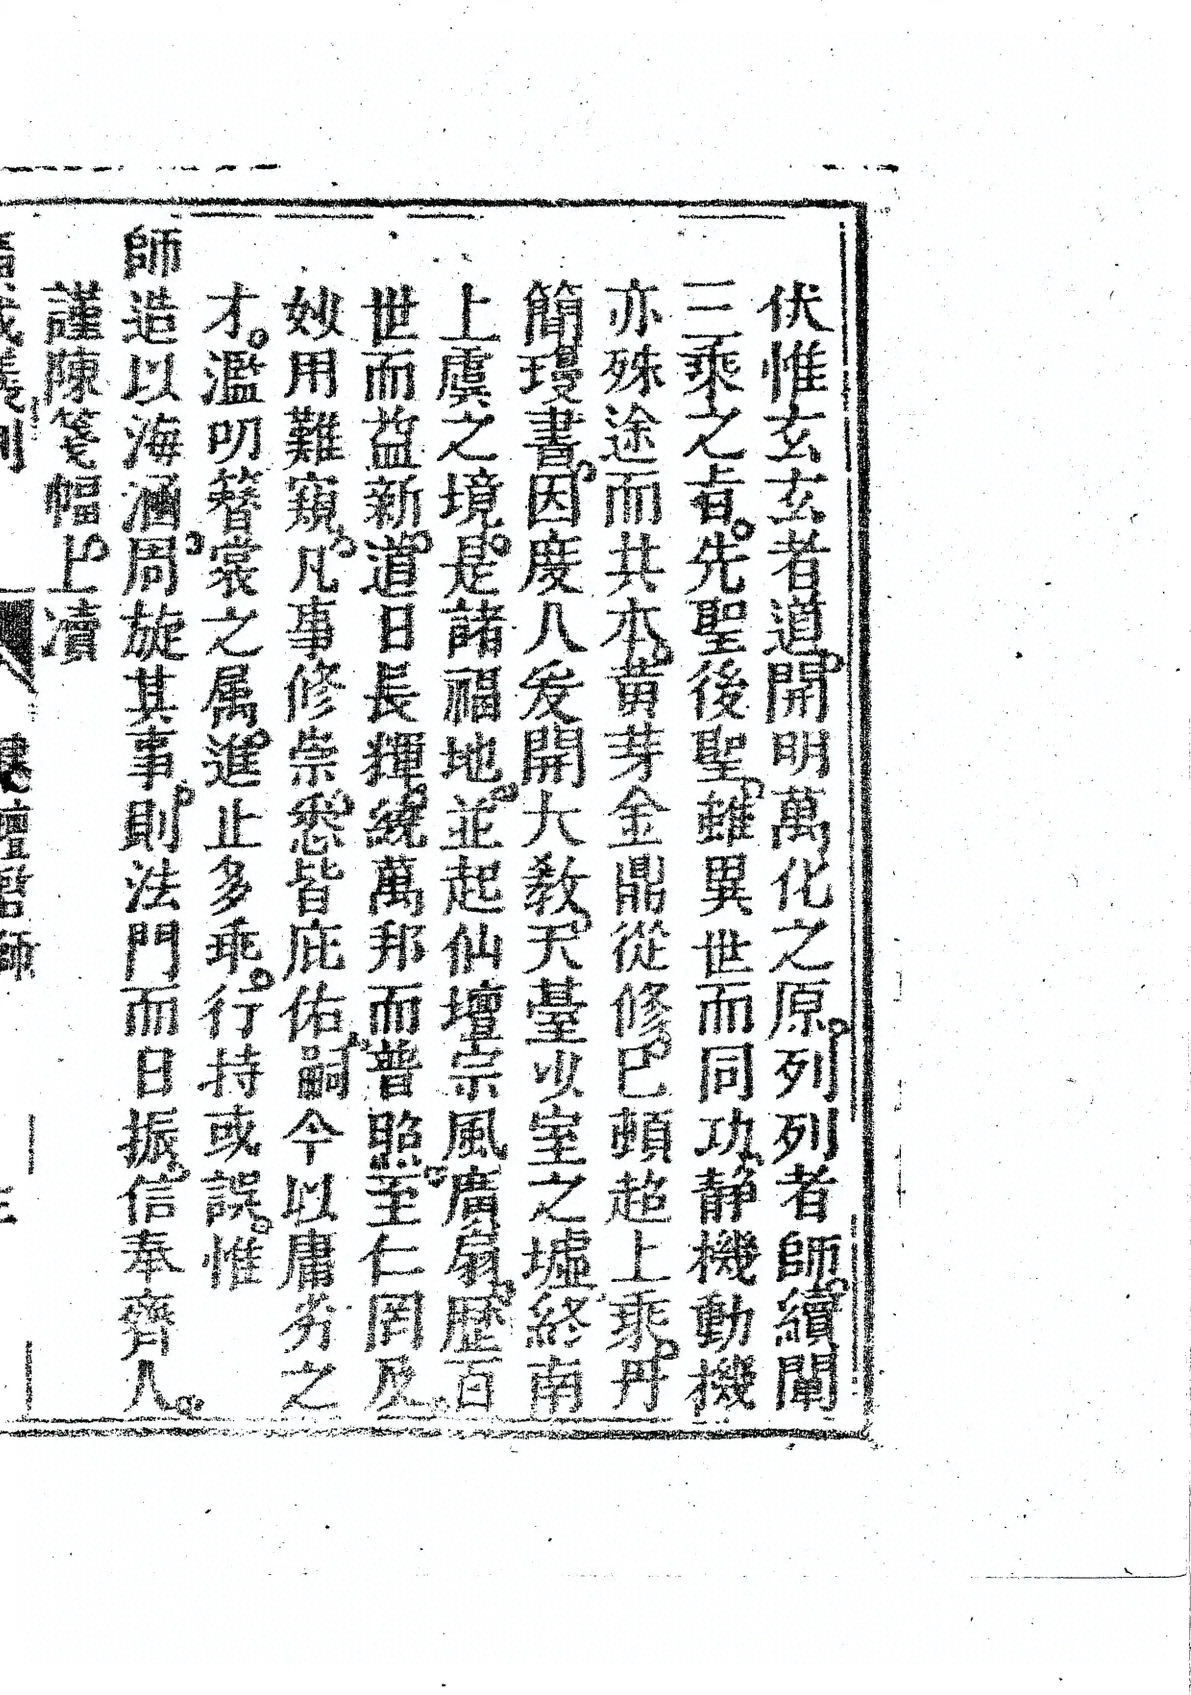 伏惟玄玄者道開明萬化之原列列者師續闡
三乘之㫖先聖後聖雖異世而同功静機動機
亦殊途而共本黄芽金鼎從修巳頓超上乘丹
簡瑴書因度人发開大教天臺少室之墟終南
上虞之境是諸福地並起仙壇宗風廣扇歷百
世而益新道日長輝繞萬邦而普照至仁罔及
妙用難窺凡事修崇悉皆庇佑嗣今以庸劣之
才濫叨簪裳之属進止多乖行持或誤惟
師造以海涵周旋其事則法門而日振信奉齊人
謹陳箋幅上凟